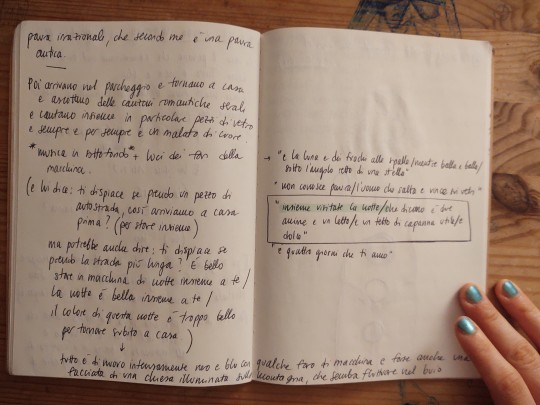 paura irrazionale, che secondo me è una paura
antica.
Poi arrivano nel parcheggio e tornano a casa
e ascoltano delle canzoni romantiche serali
e cantano insieme in particolare pezzi di vetro
e sempre e per sempre e un malato di cuore.
*musica in sottofondo* + luci dei fari della
macchina.
(e lui dice: ti dispiace se prendo un pezzo di
autostrada, così arriviamo a casa
prima? (per stare insieme)
ma potrebbe anche dire: ti dispiace se
prendo la strada più lunga? È bello
stare in macchina di notte insieme a te/
la notte è bella insieme a te/
il colore di questa notte è troppo bello
per tornare subito a casa)
↓
tutto è di nuovo intensamente nero e blu con qualche faro di macchina e forse anche una
facciata di una chiesa illuminata sulla montagna, che sembra fluttuare nel buio
→ "e la luna è dei fuochi alle spalle/mentre balla e balla/
sotto l'angolo retto di una stella"
"non conosce paura/l'uomo che salta e vince sui vetri"
"insieme visitate la notte/che dicono è due
anime e un letto/e un tetto di capanna utile/e
dolce"
"è quattro giorni che ti amo"